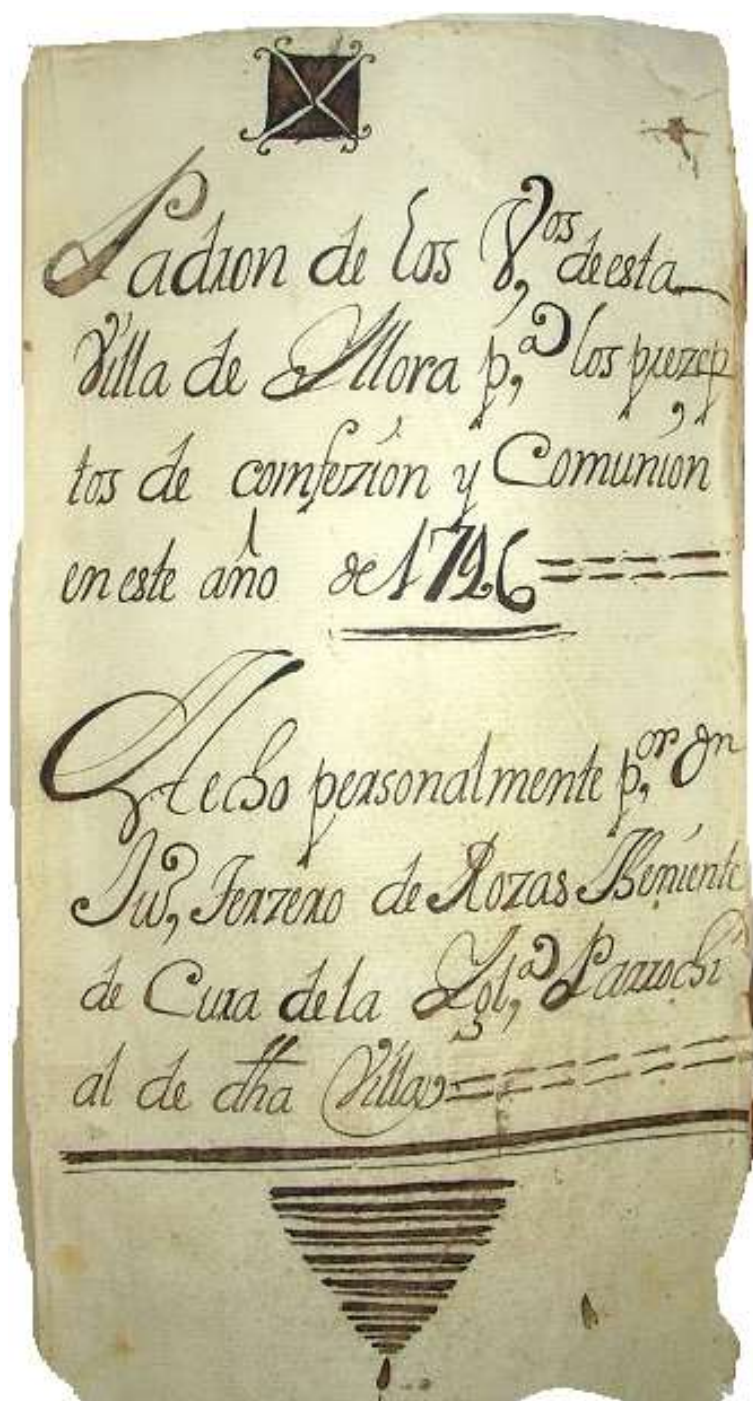 Padron de los V,os de esta
Villa de Yllora p,a los prezep
tos de comfezión y Comunión
en este año de 1726
Hecho personalmente p,or Dn
Ju,o Ferzero de Rozas Theniente
de Cura de la Ygl,a Parrochi
al de dha Villa